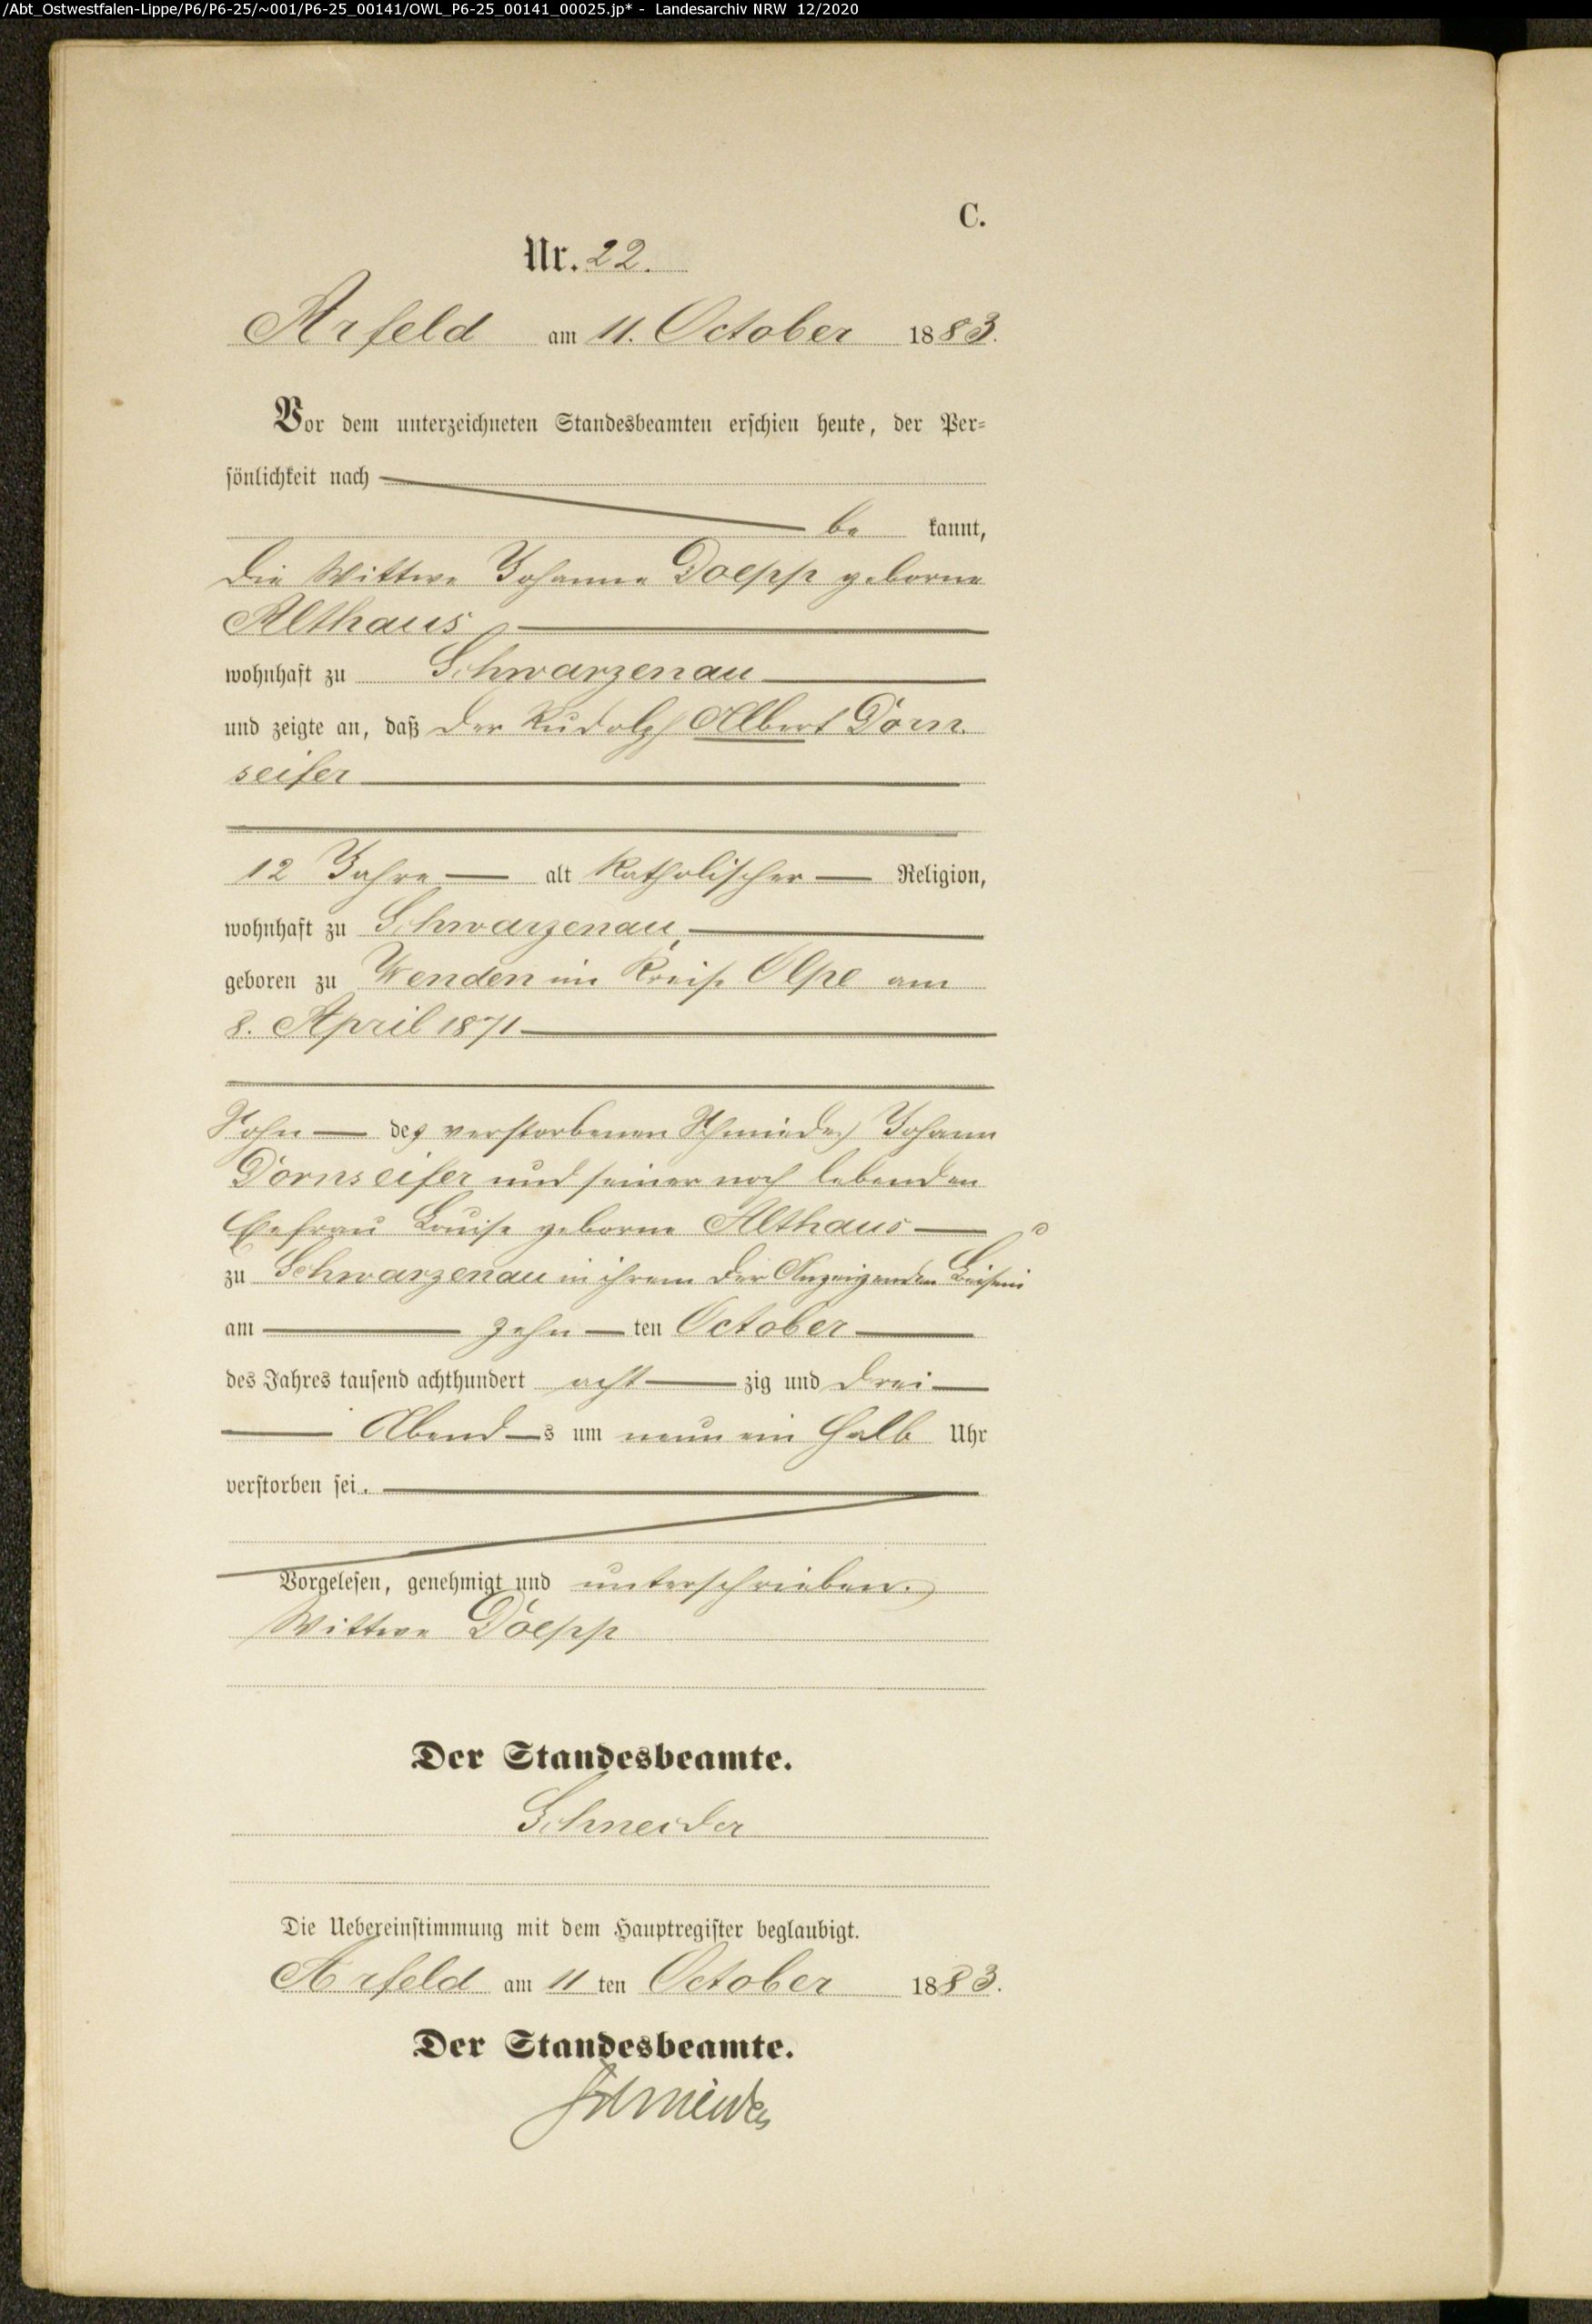 /Abt_Ostwestfalen-Lippe/P6/P6-25/~001/P6-25_00141/OWL_P6-25_00141_00025.jp* - Landesarchiv NRW 12/2020
C.
Nr. 22.
Arfeld am 11. October 1883.
Vor dem unterzeichneten Standesbeamten erschien heute, der Per-
sönlichkeit nach
be kannt,
die Wittwe Johanne Doepp geborne
Althaus,
wohnhaft zu Schwarzenau
und zeigte an, daß der Rudolph Albert Dorn
seifer
12 Jahre alt katholischer Religion,
wohnhaft zu Schwarzenau,
geboren zu Wenden im Kreise Olpe am
8. April 1871
Sohn des verstorbenen Schmiedes Johann
Dornseifer und seiner noch lebenden
Ehefrau Louise geborne Althaus
zu Schwarzenau in ihrem der Anzeigenden Beisein
am zehn ten October
des Jahres tausend achthundert acht zig und drei
Abend s um neun ein halb Uhr
verstorben sei.
Vorgelesen, genehmigt und unterschrieben.
Wittwe Doepp
Der Standesbeamte.
Schneider
Die Uebereinstimmung mit dem Hauptregister beglaubigt.
Arfeld am 11 ten October 1883.
Der Standesbeamte.
Schneider